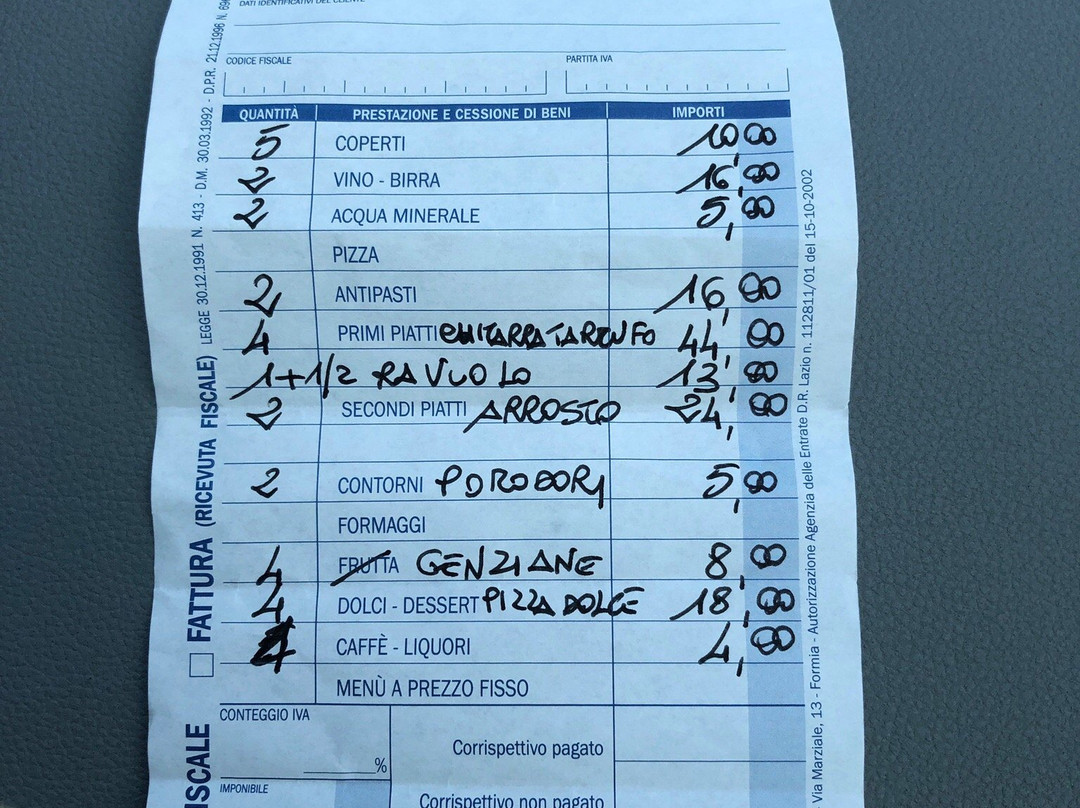 DATI IDENTIFICATIVI DEL CLIENTE
CODICE FISCALE PARTITA IVA
QUANTITÀ PRESTAZIONE E CESSIONE DI BENI IMPORTI
5 COPERTI 10,00
2 VINO - BIRRA 16,00
2 ACQUA MINERALE 5,00
PIZZA
2 ANTIPASTI 16,00
4 PRIMI PIATTI CHITARRA TARTUFO 44,00
1+1/2 RAVUOLO 13,00
2 SECONDI PIATTI ARROSTO 24,00
2 CONTORNI POMODORI 5,00
FORMAGGI
4 FRUTTA GENZIANE 8,00
4 DOLCI - DESSERT PIZZA DOLCE 18,00
4 CAFFÈ - LIQUORI 4,00
MENÙ A PREZZO FISSO
CONTEGGIO IVA
Corrispettivo pagato
%
IMPONIBILE
Corrispettivo non pagato
FATTURA (RICEVUTA FISCALE) LEGGE 30.12.1991 N. 413 - D.M. 30.03.1992 - D.P.R. 21.12.1996 N.
ISCALE
Via Marziale, 13 - Formia - Autorizzazione Agenzia delle Entrate D.R. Lazio n. 112811/01 del 15-10-2002